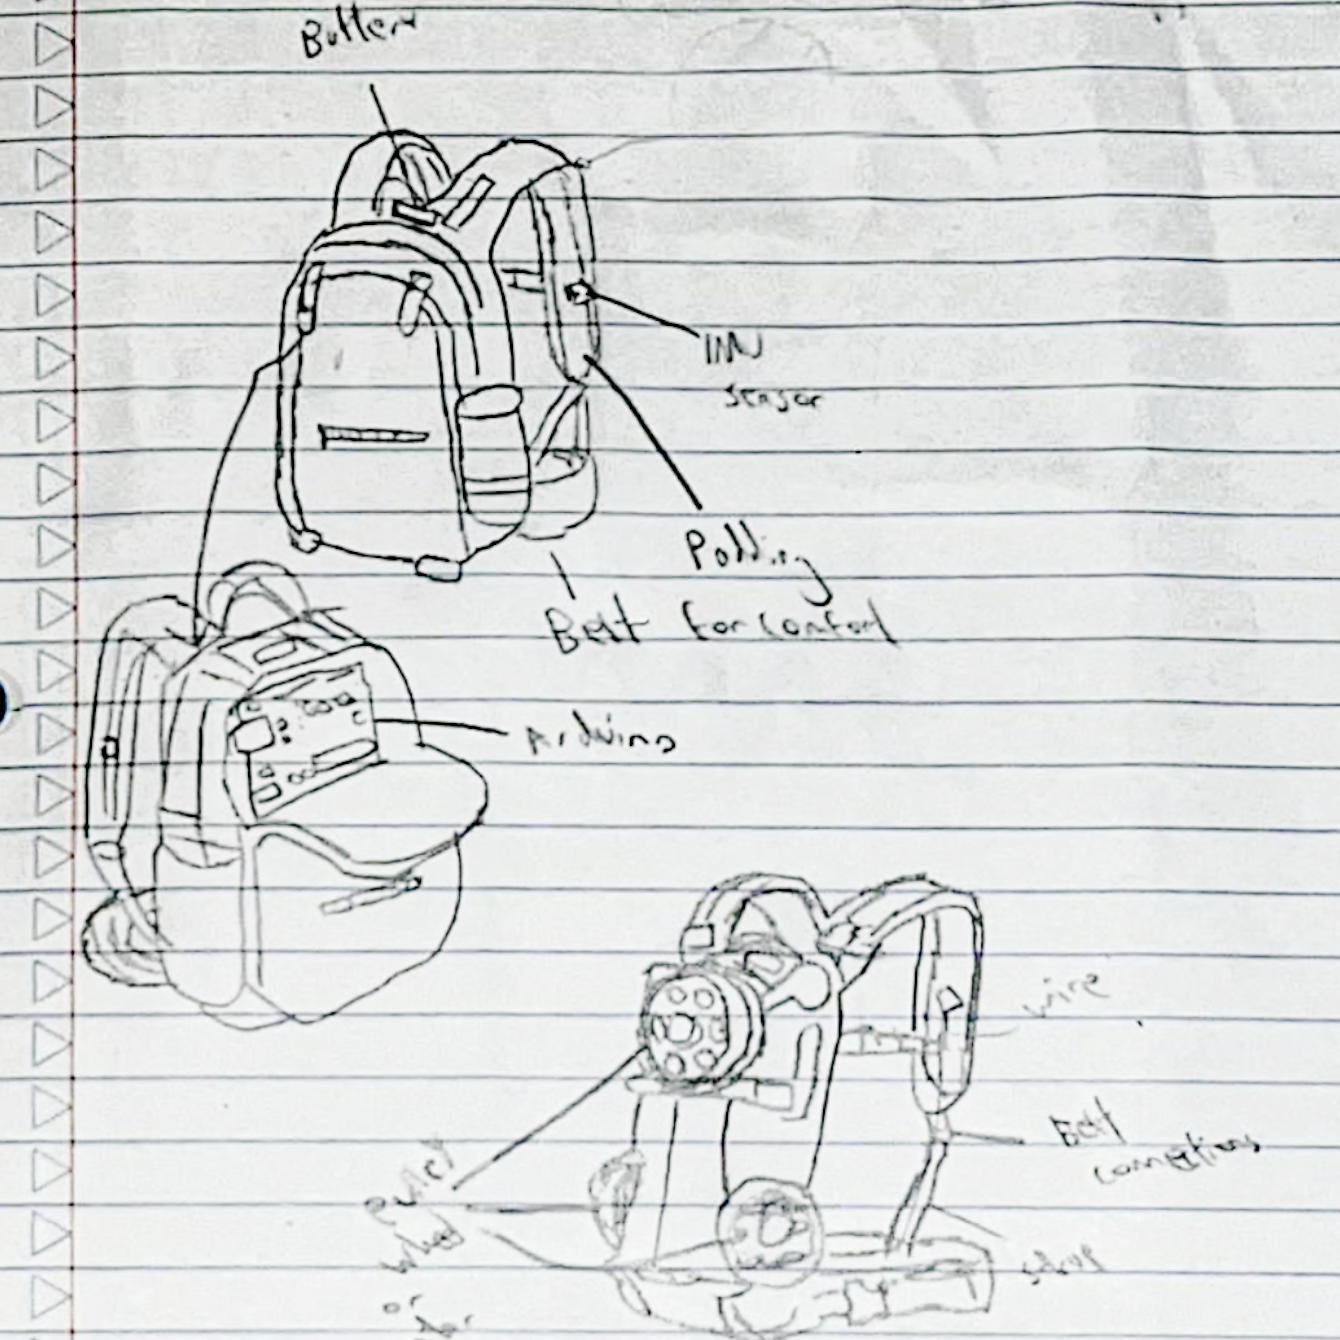 Button
IMU
sensor
Padding
Belt for comfort
Arduino
wire
Belt
connections
pulley
wheel
or
strap